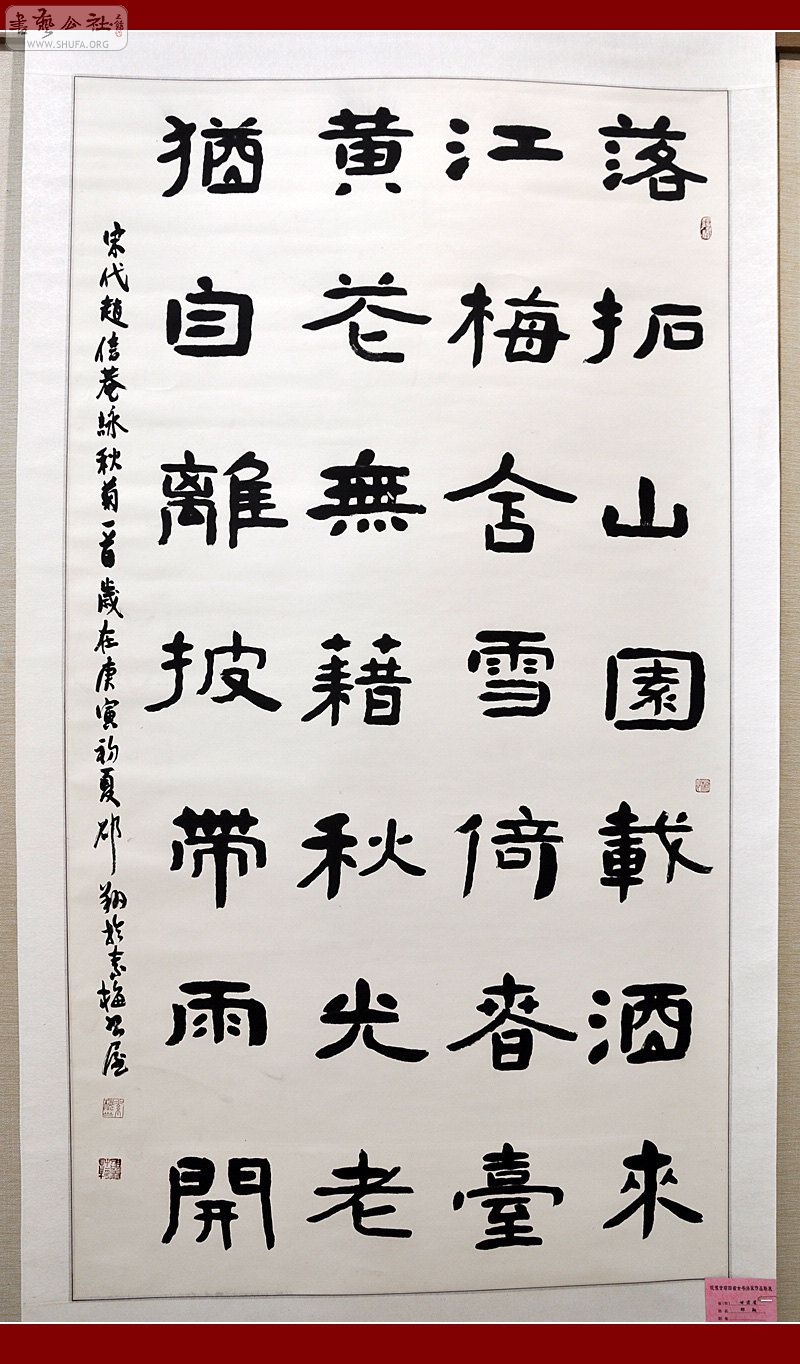 書藝公社
WWW.SHUFA.ORG
落拓山園載酒來
江梅含雪倚春臺
黄花無藉秋光老
猶自離披帶雨開
宋代趙信菴詠秋菊一首歲在庚寅初夏邵翔於素梅書屋